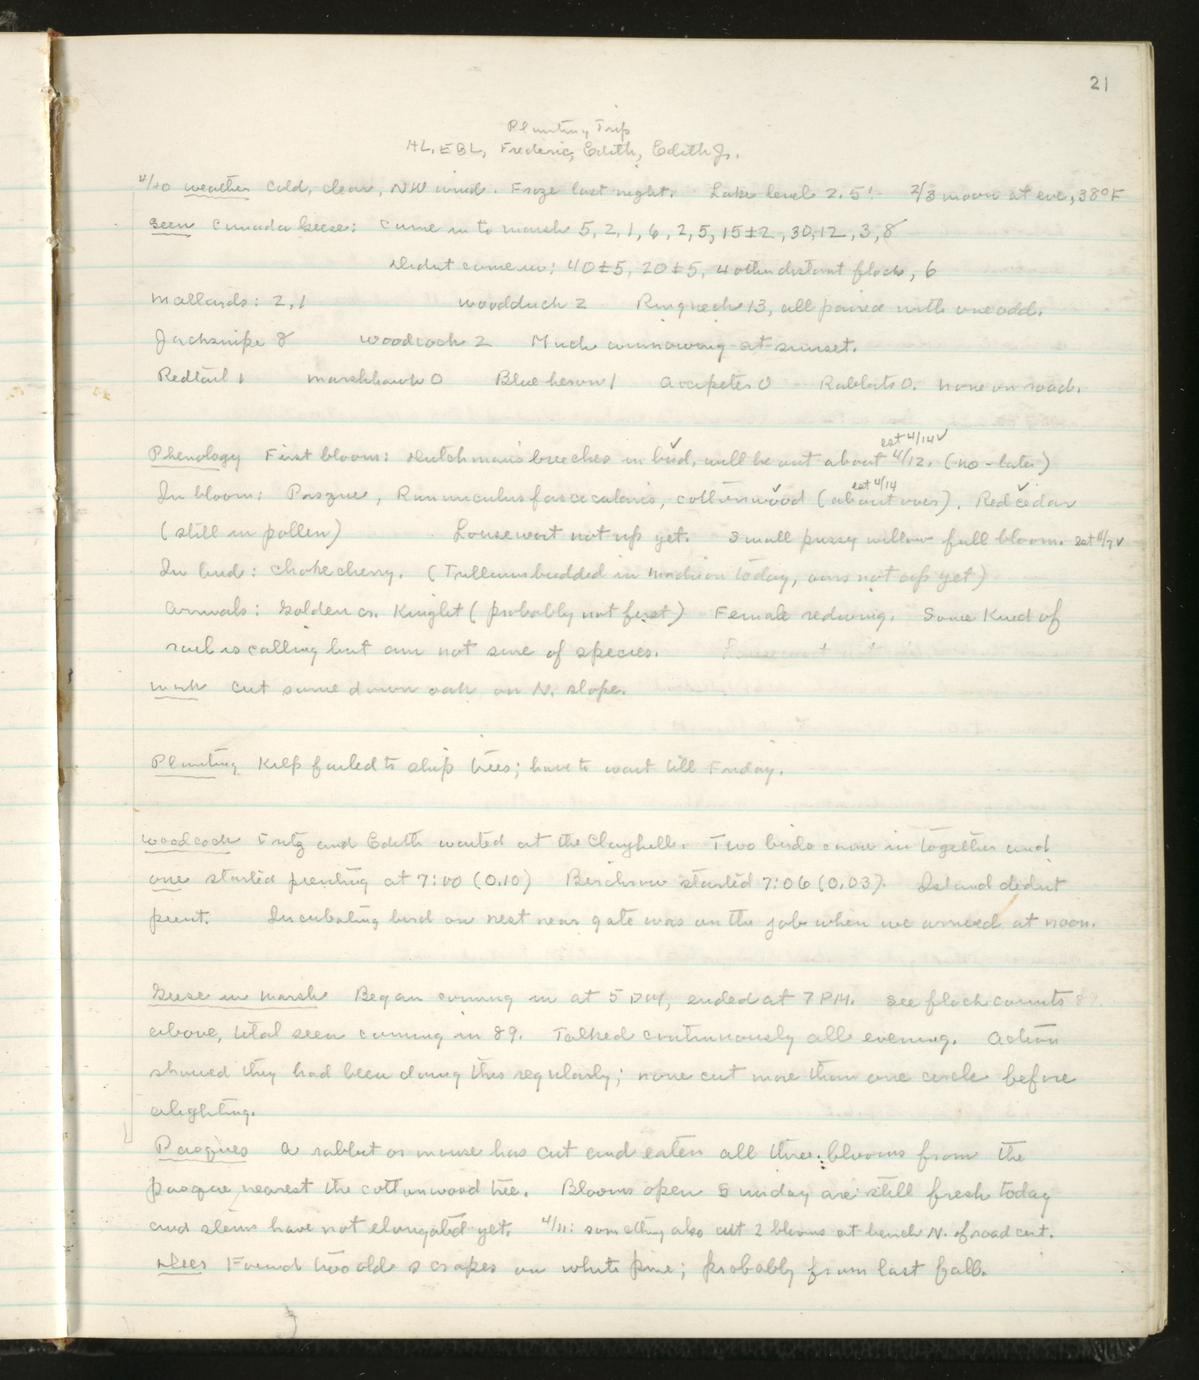 21
Planting Trip
AL, EBL, Frederic, Edith, Edith Jr.
4/10 weather Cold, clear, NW wind. Froze last night. Lake level 2.5'. 2/3 moon at eve, 38°F
Seen Canada Geese: Came in to marsh 5, 2, 1, 6, 2, 5, 15±2, 30, 12, 3, 8
Didnt come in: 40±5, 20±5, 4 other distant flock, 6
Mallards: 2, 1 woodduck 2 Ringneck 13, all paired with one odd.
Jacksnipe 8 woodcock 2 Much winnowing at sunset.
Redtail 1 marshhawk 0 Blue heron 1 Accipeter 0 Rabbits 0. none on road.
est 4/14 ✓
Phenology First bloom: Dutchman's breeches in bud, ✓ will be out about 4/12. (no - later)
est 4/14
In bloom: Pasque, Rununculus fascicularis, cottonwood ✓ (about over). Red cedar ✓
(still in pollen) Lousewort not up yet. Small pussy willow full bloom. est 4/7 ✓
In bud: chokecherry. (Trilliums budded in Madison today, ours not up yet)
Arrivals: Golden cr. Kinglet (probably not first) Female redwing. Some kind of
rail is calling but am not sure of species.
Work Cut some down oak on N. slope.
Planting Kilp failed to ship trees; have to wait till Friday.
Woodcock Fritz and Edith waited at the Clayhill. Two birds came in together and
one started peenting at 7:00 (0.10) Birchrow started 7:06 (0.03). Island didnt
peent. Incubating bird on nest near gate was on the job when we arrived at noon.
Geese in marsh Began coming in at 5 PM, ended at 7 PM. See flock counts 89.
above, total seen coming in 89. Talked continuously all evening. Action
showed they had been doing this regularly; none cut more than one circle before
alighting.
Pasques A rabbit or mouse has cut and eaten all three blooms from the
pasque nearest the cottonwood tree. Blooms open Sunday are still fresh today
and stems have not elongated yet. 4/11: something also cut 2 blooms at bench N. of road cut.
Deer Found two old scrapes on white pine; probably from last fall.